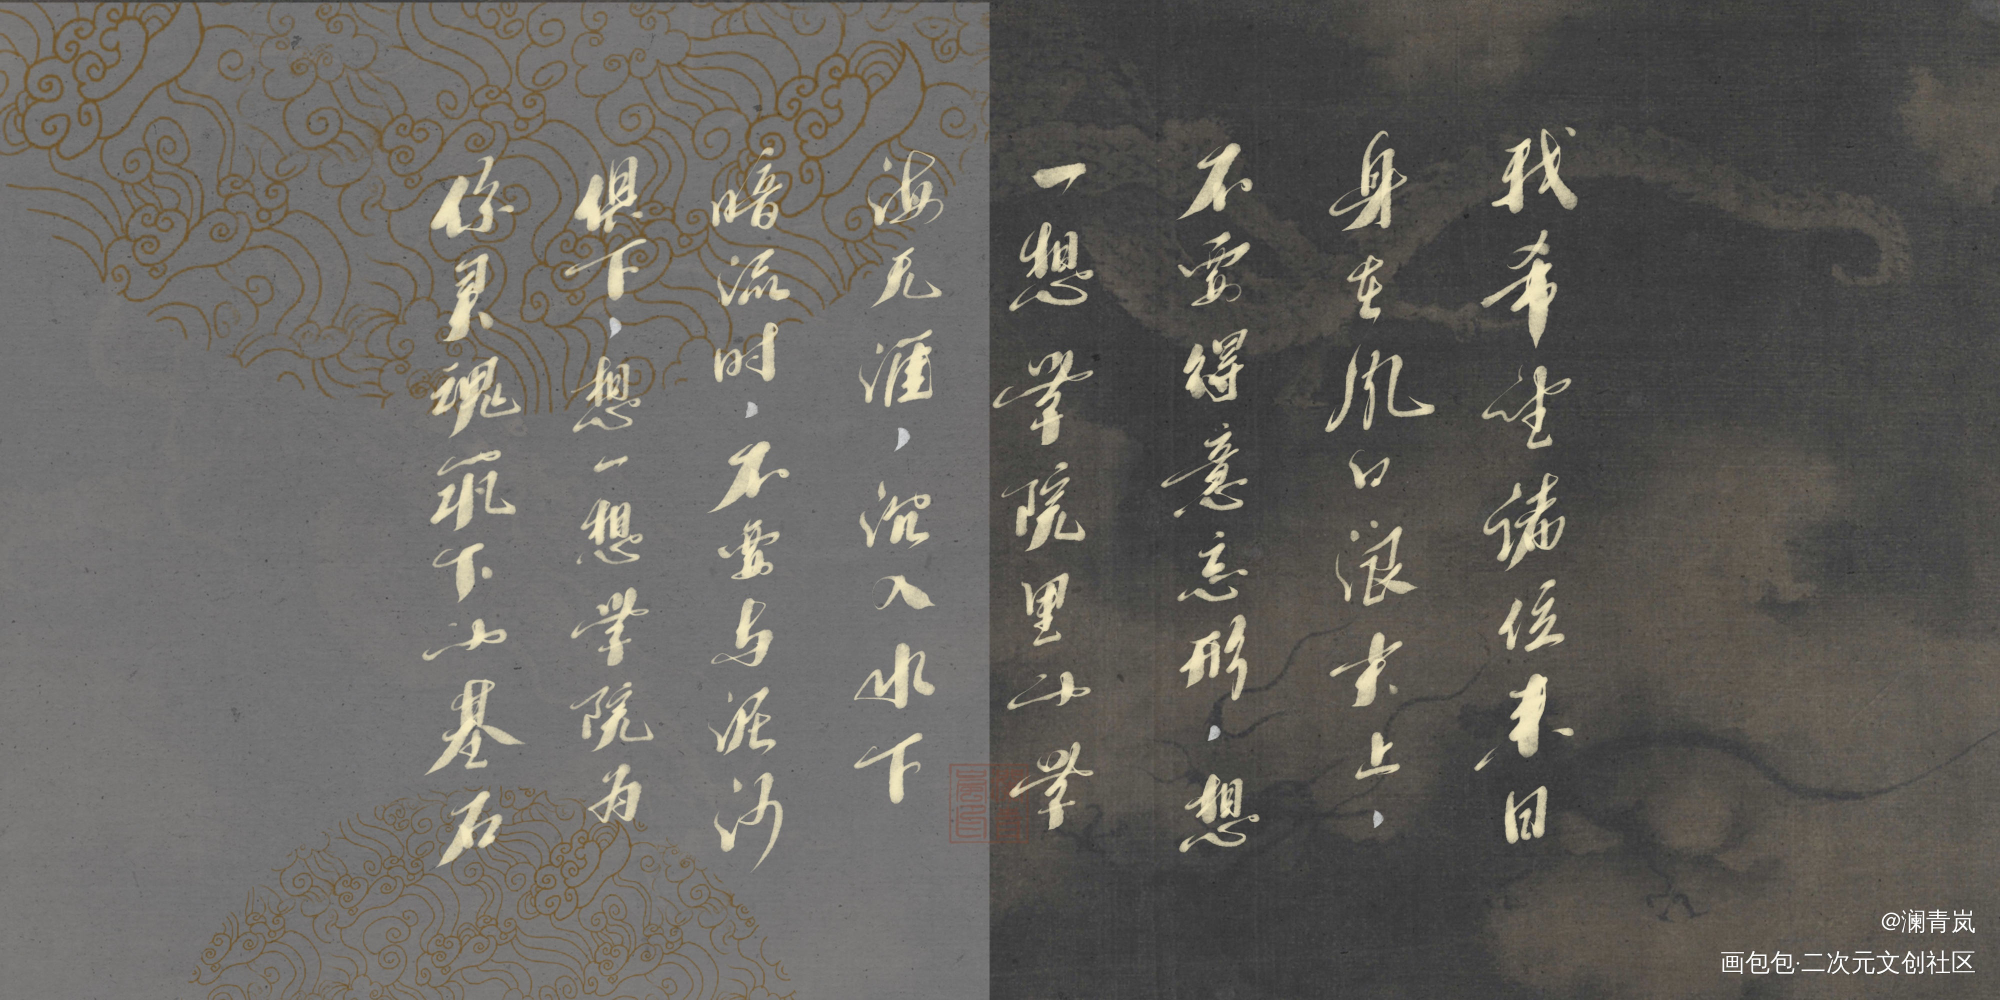 我希望诸位来日
身在风口浪尖上，
不要得意忘形，想
一想学院里的学
海无涯，沉入水下
暗流时，不要与泥沙
俱下，想一想学院为
你灵魂筑下的基石
@澜青岚
画包包·二次元文创社区